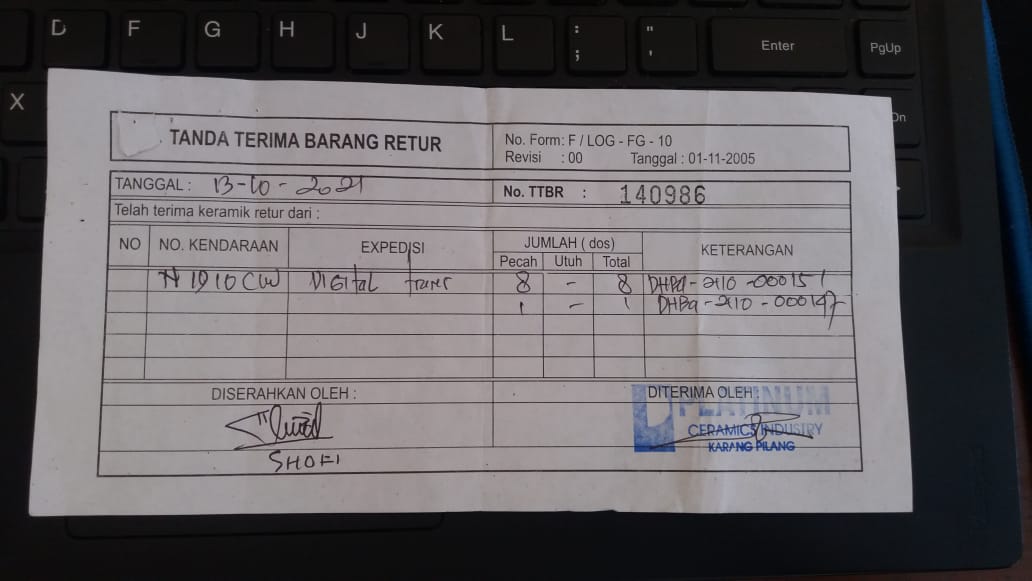 D F G H J K L : ; " '
Enter
PgUp
X
TANDA TERIMA BARANG RETUR
No. Form: F / LOG - FG - 10
Revisi : 00 Tanggal : 01-11-2005
TANGGAL : 13-10-2021
No. TTBR : 140986
Telah terima keramik retur dari :
NO NO. KENDARAAN EXPEDISI JUMLAH ( dos) KETERANGAN
Pecah Utuh Total
N 1910 CW DIGItal trans 8 - 8 DHPa-2110-000151
1 - 1 DHPa-2110-000147
DISERAHKAN OLEH : DITERIMA OLEH :
PLATINUM
CERAMICS INDUSTRY
KARANG PILANG
SHOFI